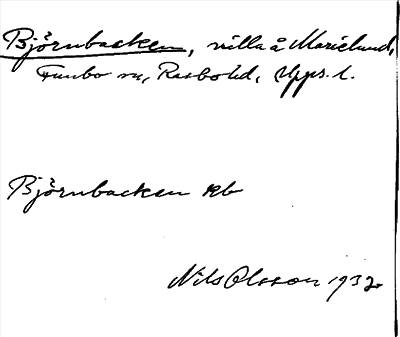 Björnbacken, villa å Marielund,
Funbo sn, Rasbo hd, Upps. l.
Björnbacken rb
Nils Olsson 1932